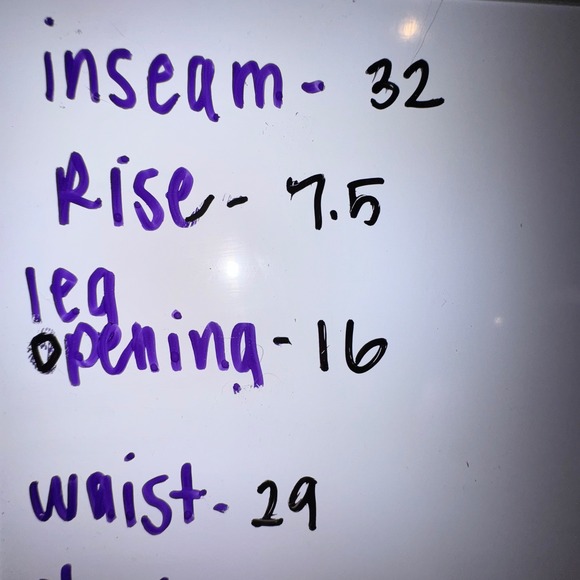 inseam- 32
Rise- 7.5
leg
opening-16
waist- 29